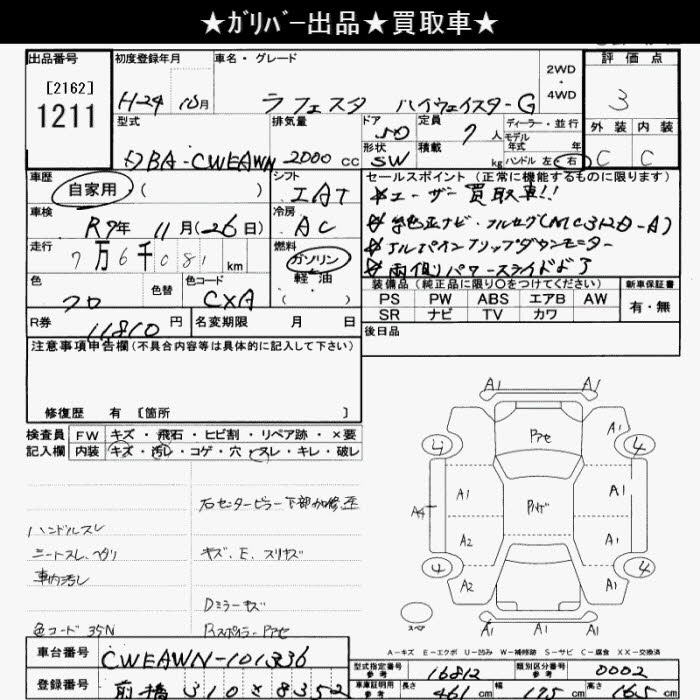 ★ガリバー出品★買取車★
出品番号
[2162]
1211
初度登録年月
H24 10月
車名・グレード
ラフェスタ ハイウェイスターG
2WD
・
4WD
評価点
3
外装 内装
C C
型式
DBA-CWEAWN
排気量
2000 cc
ドア
5D
形状
SW
定員
7人
積載
kg
ディーラー・並行
モデル
年式 年
ハンドル 左・右
車歴
自家用 ( )
シフト
IAT
車検
R7年 11月(26日)
冷房
AC
走行
7万6千081 km
燃料
ガソリン
軽油
( )
色
クロ
色替
色コード
CXA
R券
11810円
名変期限 月 日
セールスポイント(正常に機能するものに限ります)
ユーザー買取車!!
社外ナビ・フルセグ(MC312D-A)
アルパインフリップダウンモニター
両側パワースライドドア
装備品(純正品に限り○をつけてください)
PS PW ABS エアB AW
SR ナビ TV カワ
新車保証書
有・無
後日品
注意事項申告欄(不具合内容等は具体的に記入して下さい)
修復歴 有 [箇所 ]
検査員
記入欄
FW キズ・飛石・ヒビ割・リペア跡・×要
内装 キズ・汚レ・コゲ・穴・スレ・キレ・破レ
右センターピラー下部加修歪
ハンドルスレ
シートスレ、ヘタリ
キズ、E、スリキズ
車内汚レ
Dミラーキズ
色コード 35N
Rスポイラーアセ
A1 A1
アセ
A1
4 4
A1 A1
A2 A1
4 4
A2 A1
A1 A1 A1
スペア
A-キズ E-エクボ U-凹み W-補修跡 S-サビ C-腐食 XX-交換済
車台番号
CWEAWN-101336
登録番号
前橋 310 × 8352
型式指定番号
参考
16812
類別区分番号
参考
0002
車庫証明用
参考
長さ 461 cm 幅 175 cm 高さ 165 cm